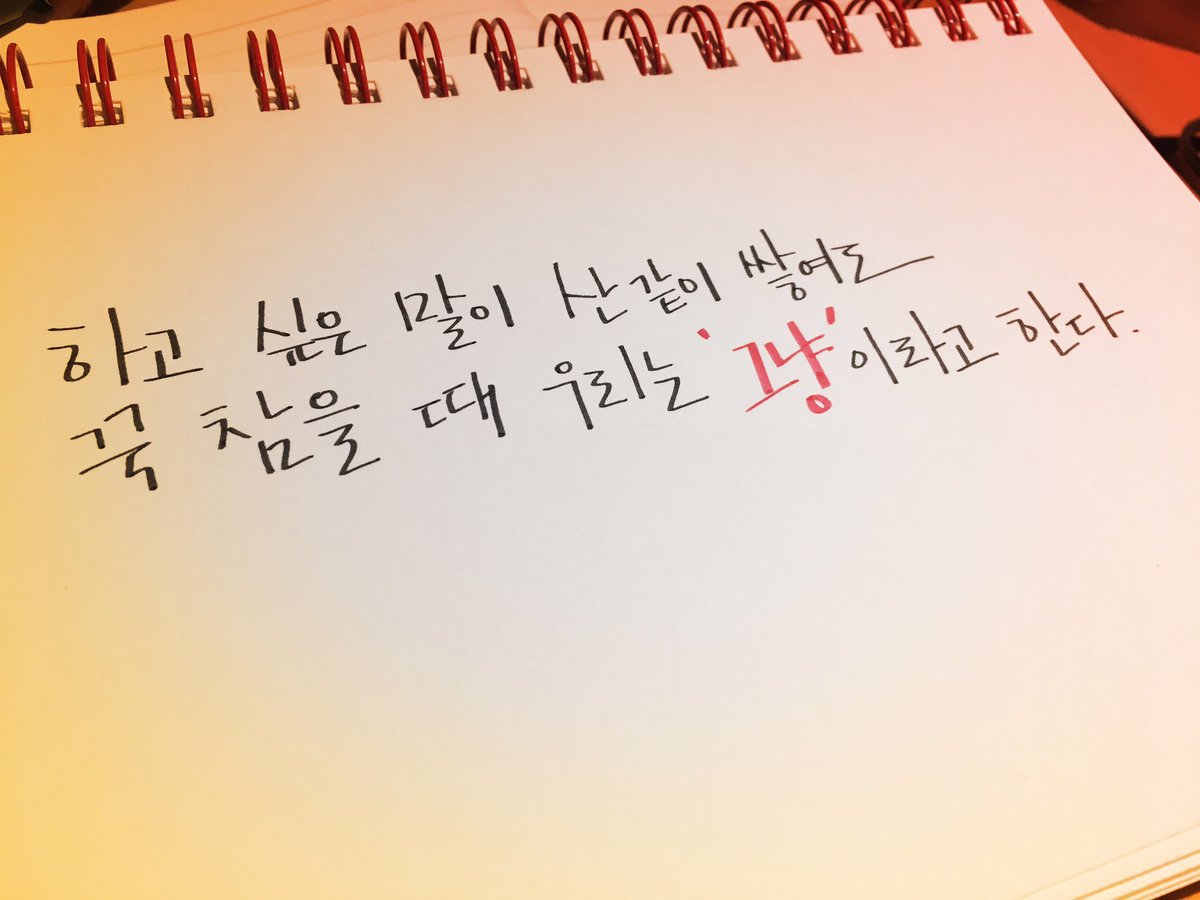 하고 싶은 말이 산같이 쌓여도
꾹 참을 때 우리는 '그냥'이라고 한다.